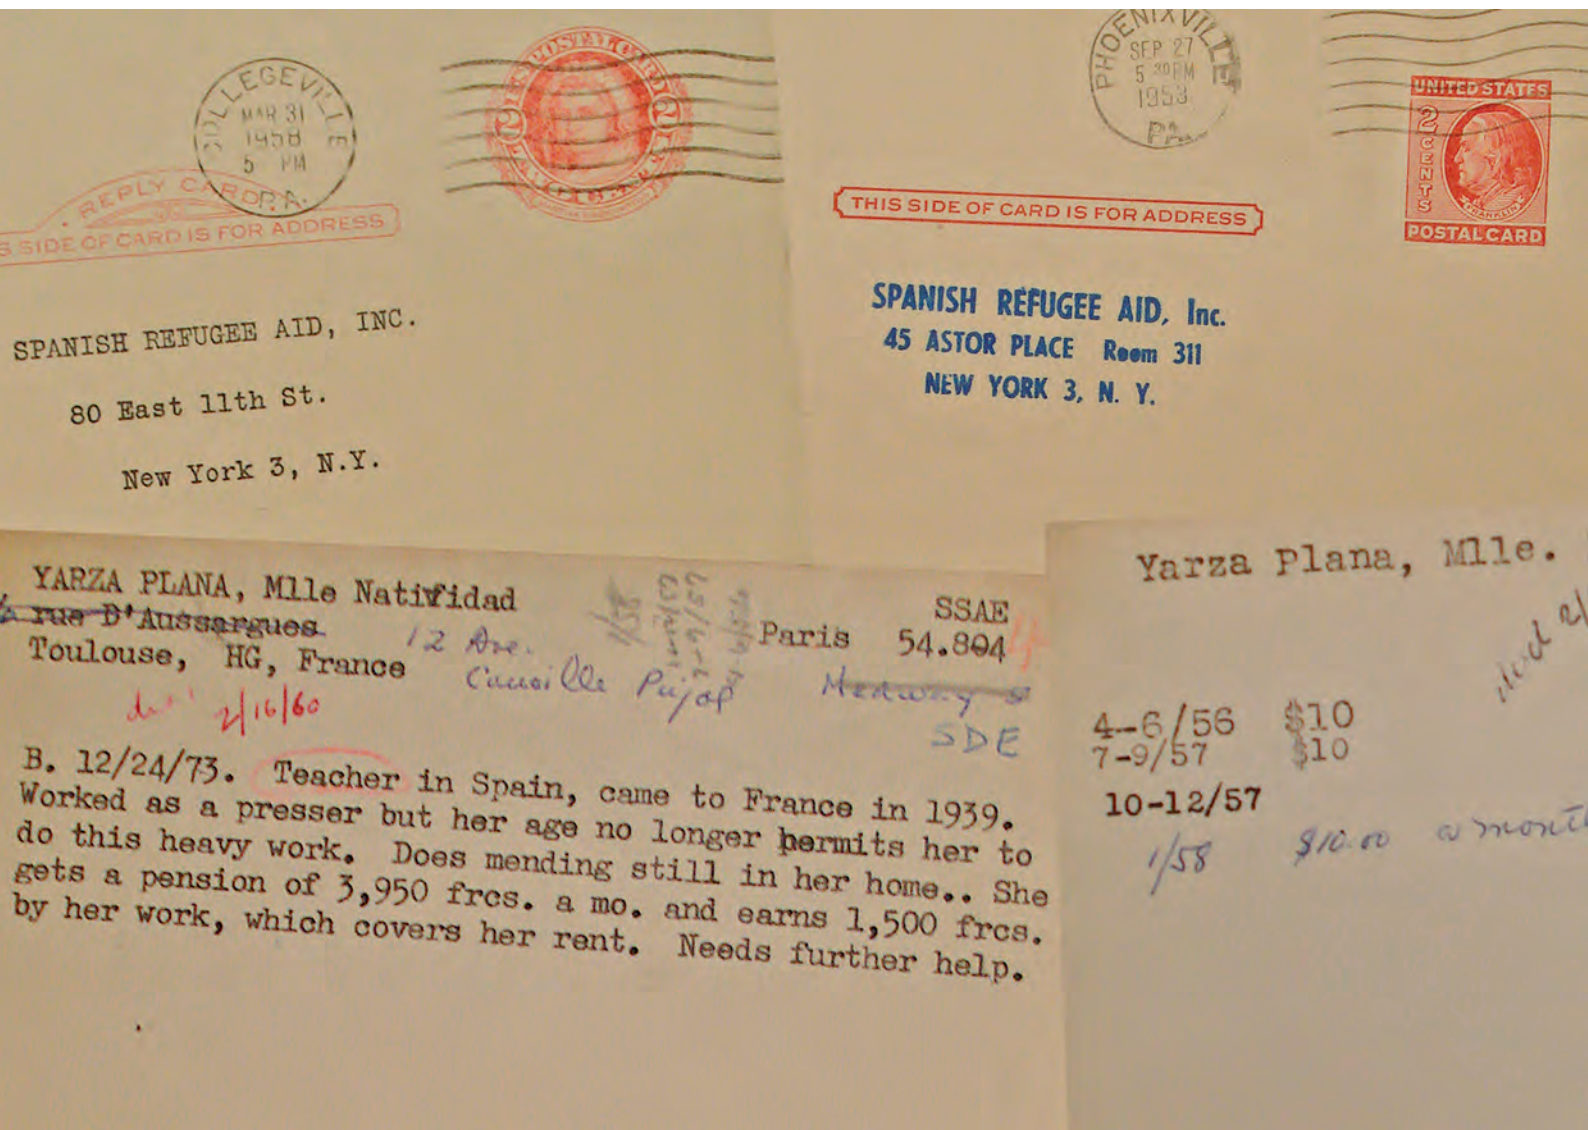 COLLEGEVILLE
MAR 31
1958
5 PM
P.A.
U.S. POSTAL CARD
REPLY CARD
S SIDE OF CARD IS FOR ADDRESS
SPANISH REFUGEE AID, INC.
80 East 11th St.
New York 3, N.Y.
PHOENIXVILLE
SEP 27
5 30 PM
1953
PA.
UNITED STATES
2 CENTS
FRANKLIN
POSTAL CARD
THIS SIDE OF CARD IS FOR ADDRESS
SPANISH REFUGEE AID, Inc.
45 ASTOR PLACE Room 311
NEW YORK 3, N. Y.
YARZA PLANA, Mlle Natividad
SSAE
rue D'Aussargues
12 Ave.
Paris 54.804
Toulouse, HG, France
Camille Pujol
SDE
2/16/60
B. 12/24/73. Teacher in Spain, came to France in 1939.
Worked as a presser but her age no longer permits her to
do this heavy work. Does mending still in her home.. She
gets a pension of 3,950 frcs. a mo. and earns 1,500 frcs.
by her work, which covers her rent. Needs further help.
Yarza Plana, Mlle.
4-6/56 $10
7-9/57 $10
10-12/57
1/58 $10.00 a month